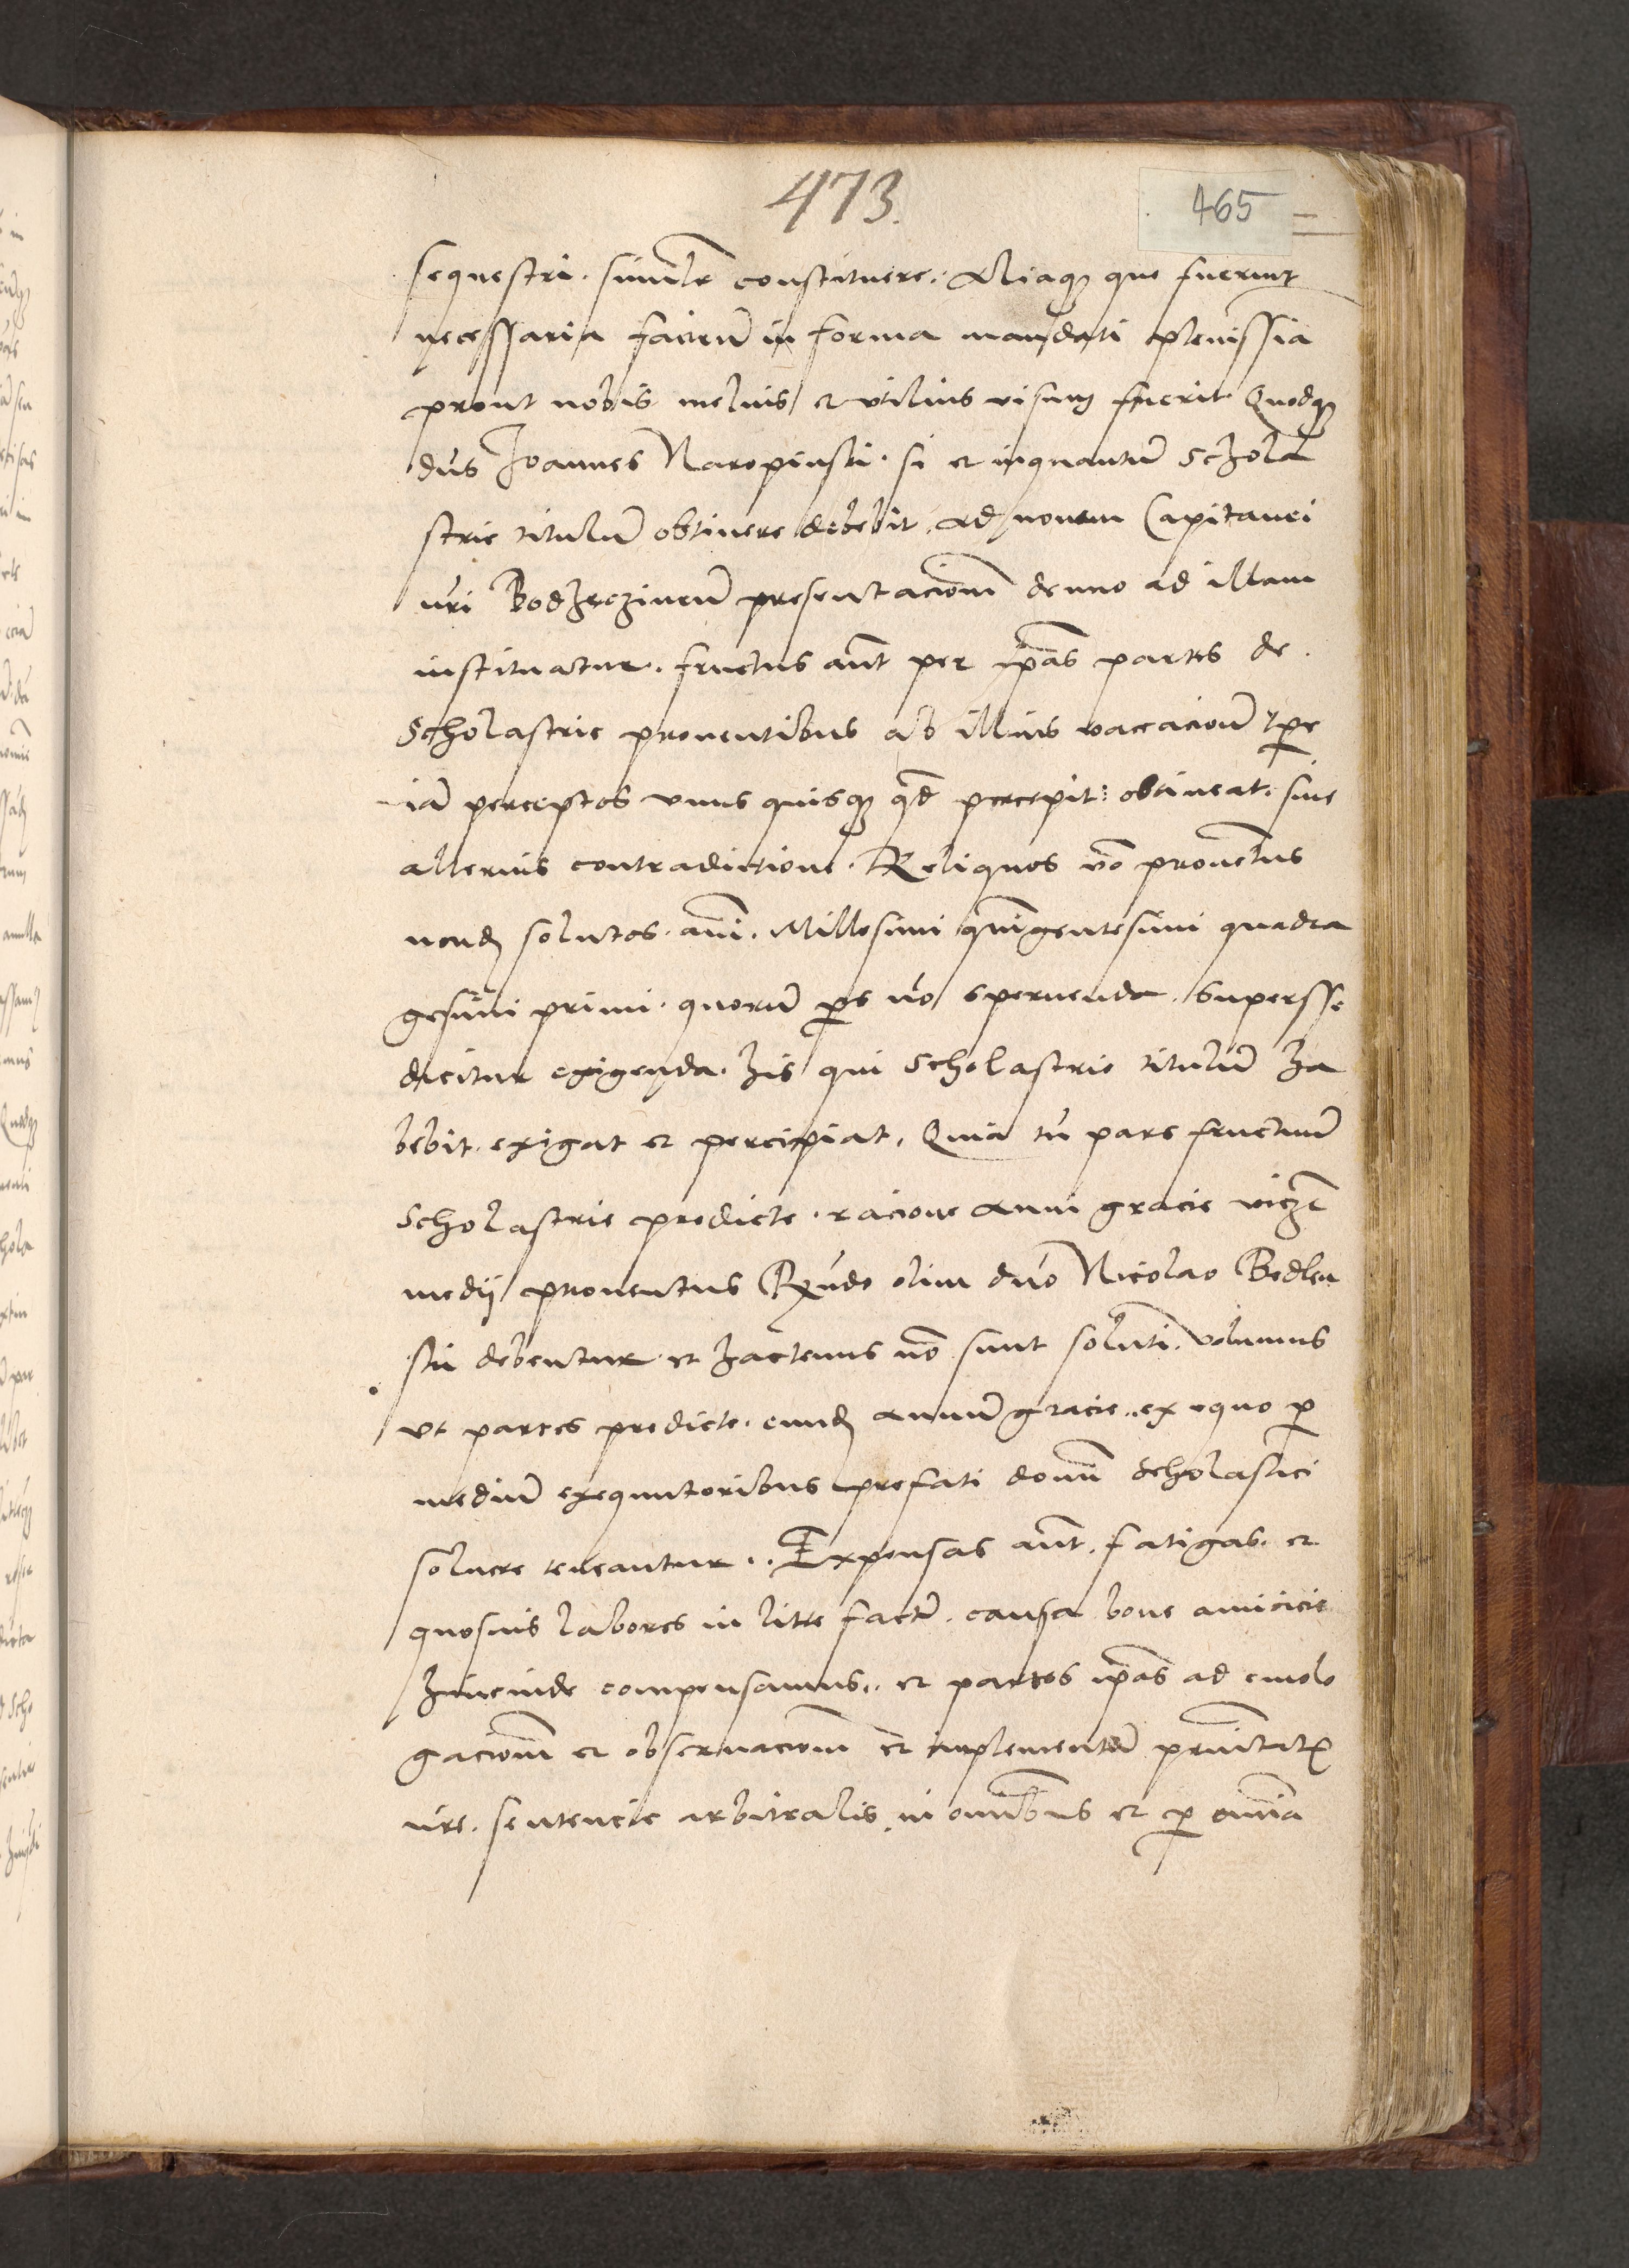 473.
465
sequestri. similr constituere. Aliaq que fuerint
necessaria facieñ in forma mandati plenissia
prout nobis melius et vtilius visum fuerit. Quodq
dñs Joannes Naropinski. si et inquantũ Schola
strie titulũ obtinere debebit. ad nouam Capitanei
nři Bodzecinen̄ presentacionem denuo ad illam
instituatur. fructus aũt per ipãs partes de
Scholastrie prouentibus ab illius vaccacioñ tpe
iã perceptos vnus quisq qd percepit: obtineat. sine
allerius contradictione. Reliquos vo prouentus
nond solutos. anni. Millesimi quingentesimi quadra
gesimi primi. quorũ ps no spernenda. superesse
dicitur exigenda. his qui Scholastrie titulũ ha
bebit. exigat et percipiat. Quia tñ pars fructuũ
Scholastrie predicte. racione anni gracie vicz
medij prouentus Rñdo olim dño Nicolao Bedlen
ski debentur et hactenus no sunt soluti. volumus
vt partes predicte. eund annũ gracie. ex equo p
mediũ exequutoribus prefati domini Scholastici
soluere teneantur. Expensas aũt. fatigas. et
quosuis labores in lite fact. causa bone amicicie
hincinde compensamus. et partes ipãs ad emolo
gacionem et obseruacionem et implementũ
nře. sentencie arbitralis. in omnibus et p omnia